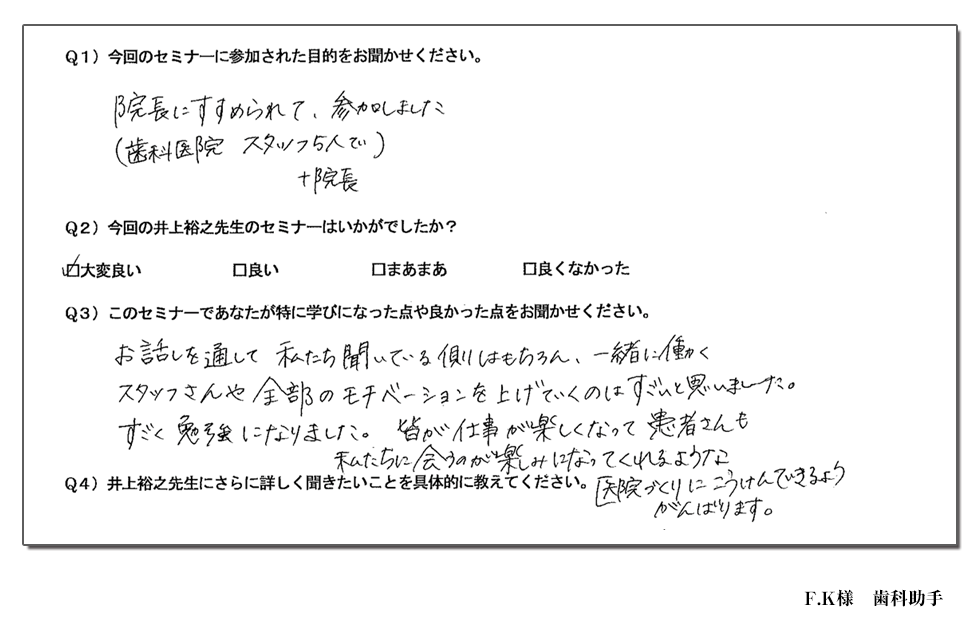 Q1）今回のセミナーに参加された目的をお聞かせください。
院長にすすめられて、参加しました
（歯科医院 スタッフ5人で）
＋院長
Q2）今回の井上裕之先生のセミナーはいかがでしたか？
☑大変良い □良い □まあまあ □良くなかった
Q3）このセミナーであなたが特に学びになった点や良かった点をお聞かせください。
お話しを通して 私たち聞いている側はもちろん、一緒に働く
スタッフさんや全部のモチベーションを上げていくのはすごいと思いました。
すごく勉強になりました。 皆が仕事が楽しくなって患者さんも
私たちに会うのが楽しみになってくれるような
Q4）井上裕之先生にさらに詳しく聞きたいことを具体的に教えてください。
医院づくりにこうけんできるよう
がんばります。
F.K様 歯科助手